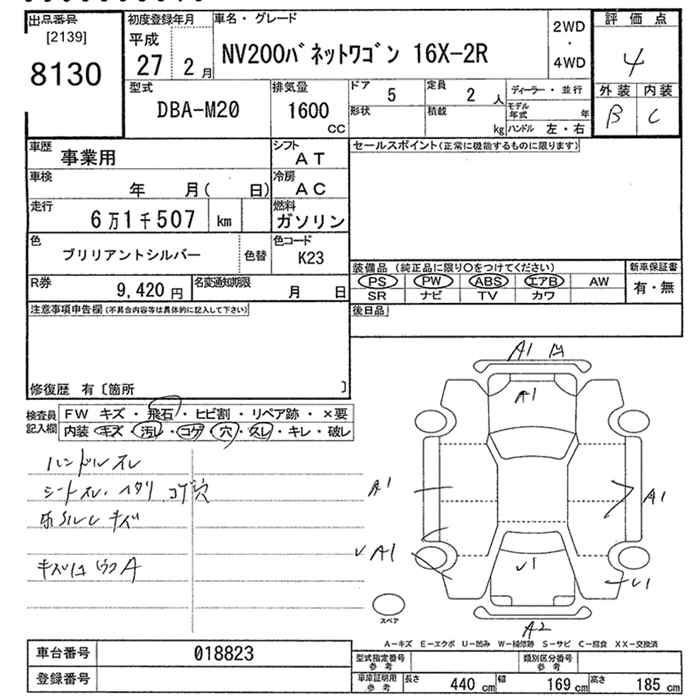 出品番号
[2139]
8130
初度登録年月
平成
27 2月
車名・グレード
NV200バネットワゴン 16X-2R
2WD
・
4WD
評価点
4
外装 内装
B C
型式
DBA-M20
排気量
1600
CC
ドア 5
定員 2 人
ディーラー・並行
形状
積載 kg
モデル年式 年
ハンドル 左・右
車歴 事業用
シフト AT
セールスポイント(正常に機能するものに限ります)
車検 年 月( 日)
冷房 AC
走行 6万1千507 km
燃料 ガソリン
色 ブリリアントシルバー 色替
色コード K23
装備品 (純正品に限り○をつけてください)
新車保証書
PS PW ABS エアB AW
有・無
SR ナビ TV カワ
R券 9,420円
名変通知期限 月 日
後日品
注意事項申告欄(不具合内容等は具体的に記入して下さい)
修復歴 有〔箇所 〕
検査員記入欄
FW キズ・飛石・ヒビ割・リペア跡・×要
内装 キズ・汚レ・コゲ・穴・スレ・キレ・破レ
ハンドルスレ
シートスレ・ヘタリ コゲ穴
A1 凹
A1
A1
A1
A1
A2
スペア
A-キズ E-エクボ U-凹み W-補修跡 S-サビ C-腐食 XX-交換済
車台番号 018823
登録番号
型式指定番号 参考
類別区分番号 参考
車庫証明用 参考 長さ 440 cm 幅 169 cm 高さ 185 cm